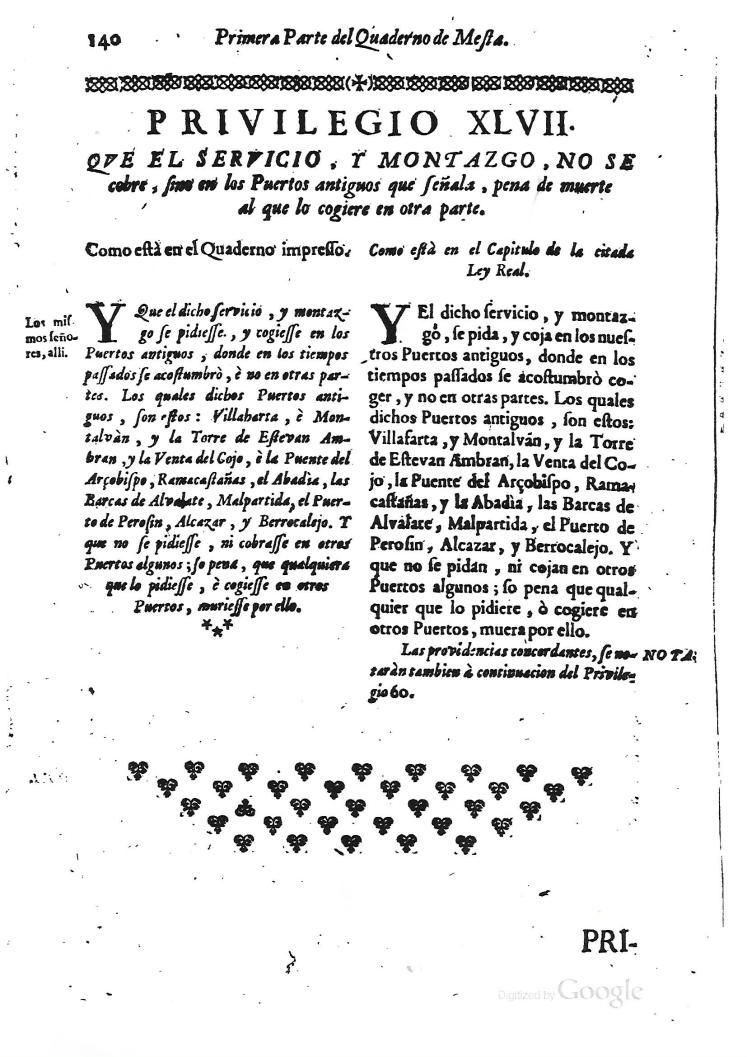 140 Primera Parte del Quaderno de Mesta.
PRIVILEGIO XLVII.
QVE EL SERVICIO, Y MONTAZGO, NO SE
cobre, sino en los Puertos antiguos que señala, pena de muerte
al que lo cogiere en otra parte.
Como està en el Quaderno impresso.
Los mis-
mos seño-
res, alli.
Y Que el dicho servicio, y montaz-
go se pidiesse, y cogiesse en los
Puertos antiguos, donde en los tiempos
passados se acostumbrò, è no en otras par-
tes. Los quales dichos Puertos anti-
guos, son estos: Villaharta, è Mon-
talvàn, y la Torre de Estevan Am-
bran, y la Venta del Cojo, è la Puente del
Arçobispo, Ramacastañas, el Abadia, las
Barcas de Alvalate, Malpartida, el Puer-
to de Perosin, Alcazar, y Berrocalejo. Y
que no se pidiesse, ni cobrasse en otros
Puertos algunos; so pena, que qualquiera
que lo pidiesse, è cogiesse en otros
Puertos, muriesse por ello.
Como està en el Capitulo de la citada
Ley Real.
Y El dicho servicio, y montaz-
gò, se pida, y coja en los nues-
tros Puertos antiguos, donde en los
tiempos passados se acostumbrò co-
ger, y no en otras partes. Los quales
dichos Puertos antiguos, son estos:
Villafarta, y Montalván, y la Torre
de Estevan Ambran, la Venta del Co-
jo, la Puente del Arçobispo, Rama-
castañas, y la Abadia, las Barcas de
Alvalate, Malpartida, el Puerto de
Perosin, Alcazar, y Berrocalejo. Y
que no se pidan, ni cojan en otros
Puertos algunos; so pena que qual-
quier que lo pidiere, ò cogiere en
otros Puertos, muera por ello.
Las providencias concordantes, se no-
taràn tambien à continuacion del Privile-
gio 60.
NOTA;
PRI-
Digitized by Google